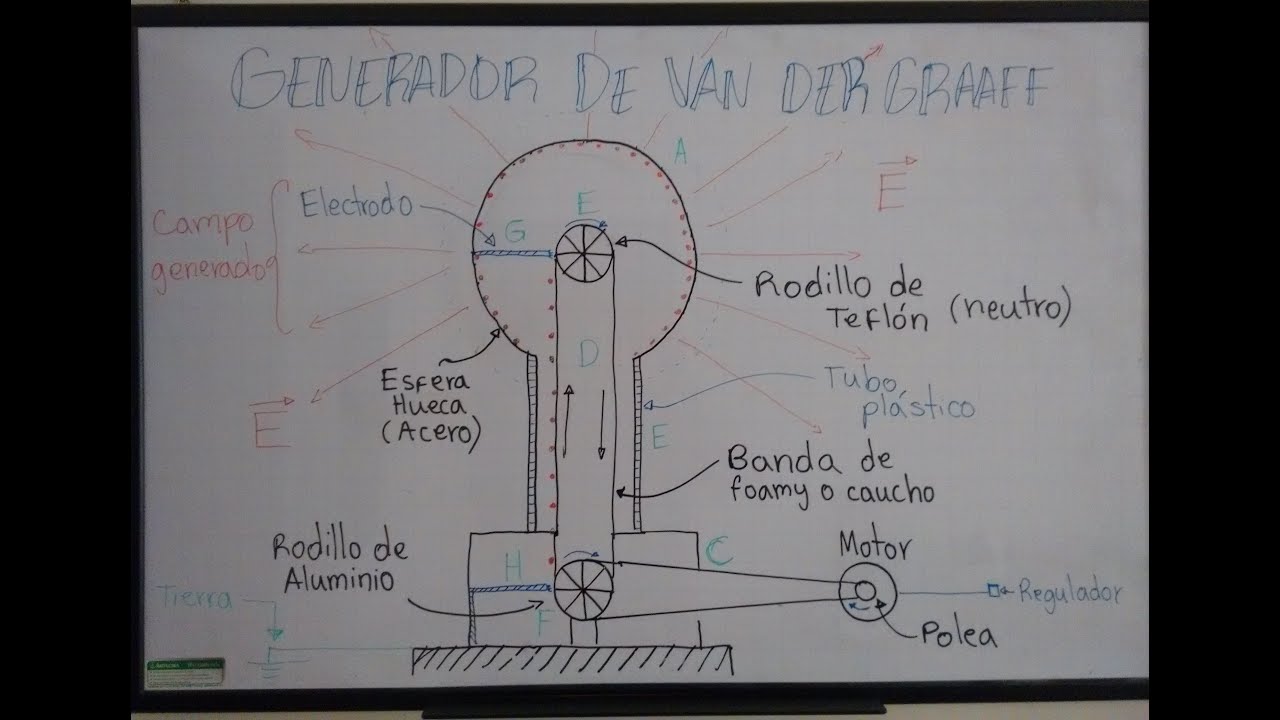 GENERADOR DE VAN DER GRAAFF
A
E
Electrodo
E
G
Campo
generado
Rodillo de
Teflón (neutro)
D
Esfera
Hueca
(Acero)
Tubo
plástico
E
E
Banda de
foamy o caucho
Rodillo de
Aluminio
H
C
Motor
Tierra
F
Regulador
Polea